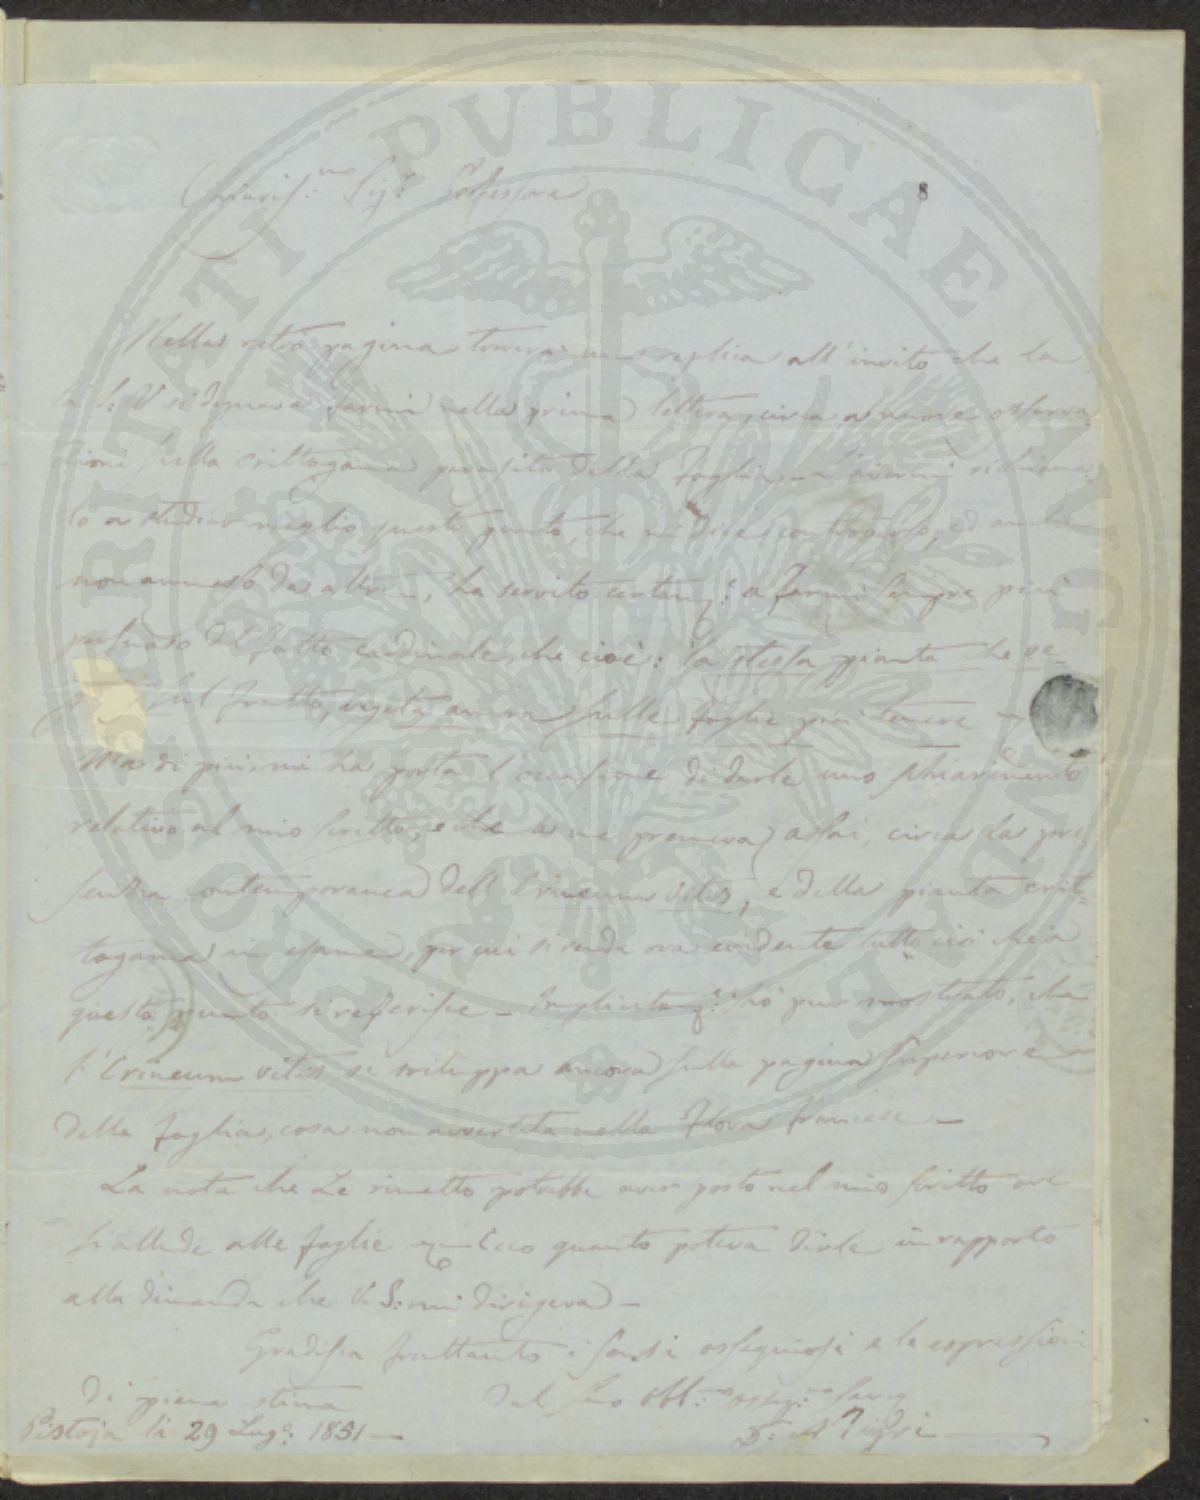 8
Chiaris.mo Sig.r Professore
Nella retro pagina troverà una replica all'invito che la
S: V si degnava farmi nella prima lettera, circa a nuove osserva
zioni sulla crittogama parasita della foglia — l'avermi richiama
to a studiar meglio questo punto, che mi dice controverso, ed anche
non ammesso da altri —, ha servito certam.e a farmi sempre più
persuaso del fatto cardinale, che cioè: la stessa pianta che ve-
sul frutto, vegeta ancora sulle foglie più tenere —
Ma di più, mi ha porta l'occasione di darle uno schiarimento
relativo al mio scritto, e che a me premeva assai, circa la pre
senza contemporanea dell'Erineum vitis, e della pianta crit-
togama in esame, per cui si renda ora evidente tutto ciò che a
questo punto si referisce — Implicitam.e ho pur mostrato, che
l'Erineum vitis si sviluppa ancora sulla pagina superiore
della foglia, cosa non avvertita nella Flora francese —
La nota che Le rimetto potrebbe aver posto nel mio scritto ove
si allude alle foglie — Ecco quanto poteva dirle in rapporto
alla dimanda che V. S: mi dirigeva —
Gradisca frattanto i sensi ossequiosi e le espressioni
di piena stima
Dal suo obb.mo osseq.mo serv.
Pistoja li 29 Lug.o: 1851 —
D: A Tigri
PVBLICAE